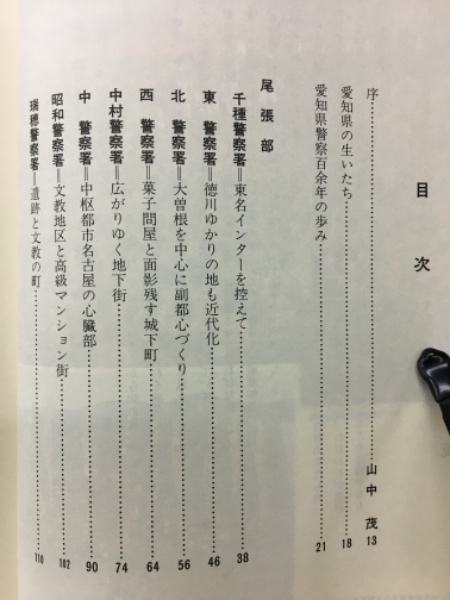 目次
序……山中 茂 13
愛知県の生いたち……18
愛知県警察百余年の歩み……21
尾張部
千種警察署＝東名インターを控えて……38
東 警察署＝徳川ゆかりの地も近代化……46
北 警察署＝大曽根を中心に副都心づくり……56
西 警察署＝菓子問屋と面影残す城下町……64
中村警察署＝広がりゆく地下街……74
中 警察署＝中枢都市名古屋の心臓部……90
昭和警察署＝文教地区と高級マンション街……102
瑞穂警察署＝遺跡と文教の町……110